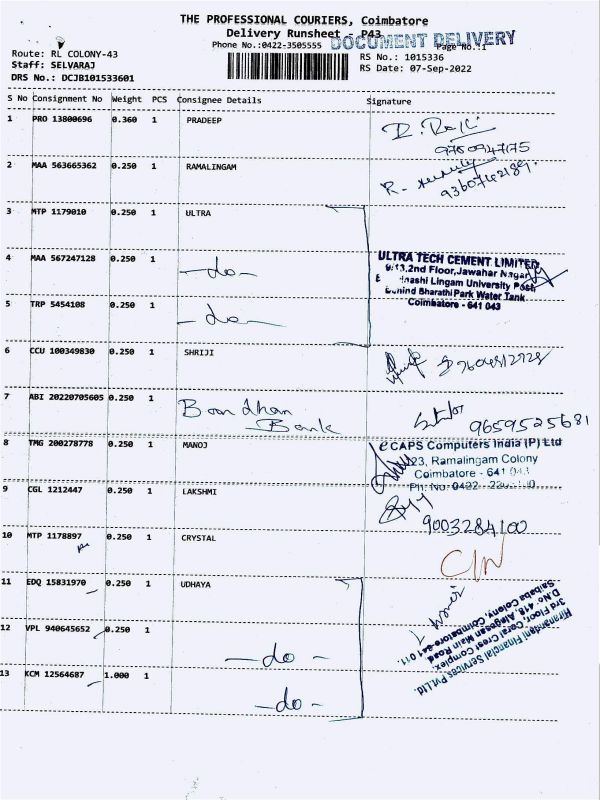 THE PROFESSIONAL COURIERS, Coimbatore
Delivery Runsheet - P43
DOCUMENT DELIVERY
Phone No.:0422-3505555
Page No.:1
Route: RL COLONY-43
Staff: SELVARAJ
DRS No.: DCJB101533601
RS No.: 1015336
RS Date: 07-Sep-2022
S No Consignment No Weight PCS Consignee Details Signature
1 PRO 13800696 0.360 1 PRADEEP
9750947175
2 MAA 563665362 0.250 1 RAMALINGAM
R.
9360742189.
3 MTP 1179010 0.250 1 ULTRA
4 MAA 567247128 0.250 1 -do-
ULTRA TECH CEMENT LIMITED
2nd Floor, Jawahar Nagar
Lingam University Post,
Behind Bharathi Park Water Tank
Coimbatore - 641 043
5 TRP 5454108 0.250 1 -do-
6 CCU 100349830 0.250 1 SHRIJI
7 ABI 20220705605 0.250 1 Bandhan
Bank
9659525681
8 TMG 200278778 0.250 1 MANOJ
eCAPS Computers India (P) Ltd
Ramalingam Colony
Coimbatore - 641
Ph: No: 0422
9 CGL 1212447 0.250 1 LAKSHMI
9003284100
10 MTP 1178897 0.250 1 CRYSTAL
11 EDQ 15831970 0.250 1 UDHAYA
12 VPL 940645652 0.250 1 -do-
Hiranandani Financial Services Pvt.Ltd.
3rd Floor, Coral Crest Complex,
D.No: 418, Alagesan Main Road
Saibaba Colony, Coimbatore-641 011.
13 KCM 12564687 1.000 1 -do-